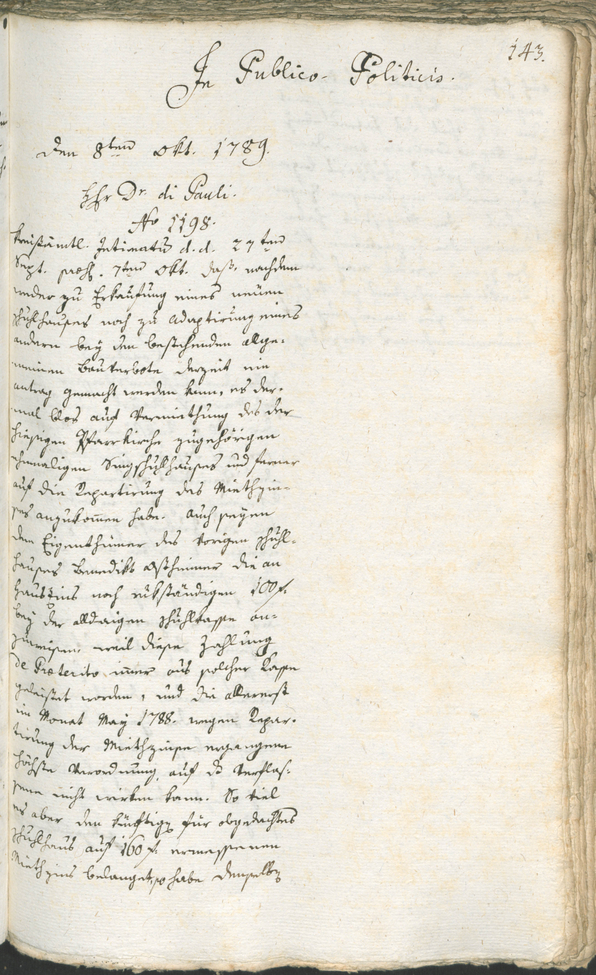 143.
In Publico-Politicis.
den 8ten Okt. 1789.
Hr Dr di Pauli.
No 1198.
Kreisämtl. Intimatum d. d. 27ten
Sept. praes. 7ten Okt. daß, nachdem
weder zu Erkaufung eines neuen
Schuhlhauses noch zu Adaptirung eines
andern bey dem bestehenden allge-
meinen Bauverbote derzeit ein
antrag gemacht werden kann, es der-
mal blos auf Vermiethung des der
hiesigen Pfarrkirche zugehörigen
ehemaligen Singschuhlhauses und ferner
auf die Repartirung des Miethzin-
ses anzukommen habe. Auch seyen
dem Eigenthümer des vorigen Schuhl-
hauses Benedikt Ostheimer die an
Hauszins noch rükständigen 100 f.
bey der alldasigen Schuhlkasse an-
zuweisen, weil diese Zahlung
de Praeterito immer aus solcher Kasse
geleistet worden, und die allererst
im Monat May 1788. wegen Repar-
tirung der Miethzinse ergangene
höchste Verordnung, auf das Verflos-
sene nicht wirken kann. So viel
es aber den künftigen für obgedachtes
Schuhlhaus auf 160 f. ermessenen
Miethzins belanget, so habe denselben